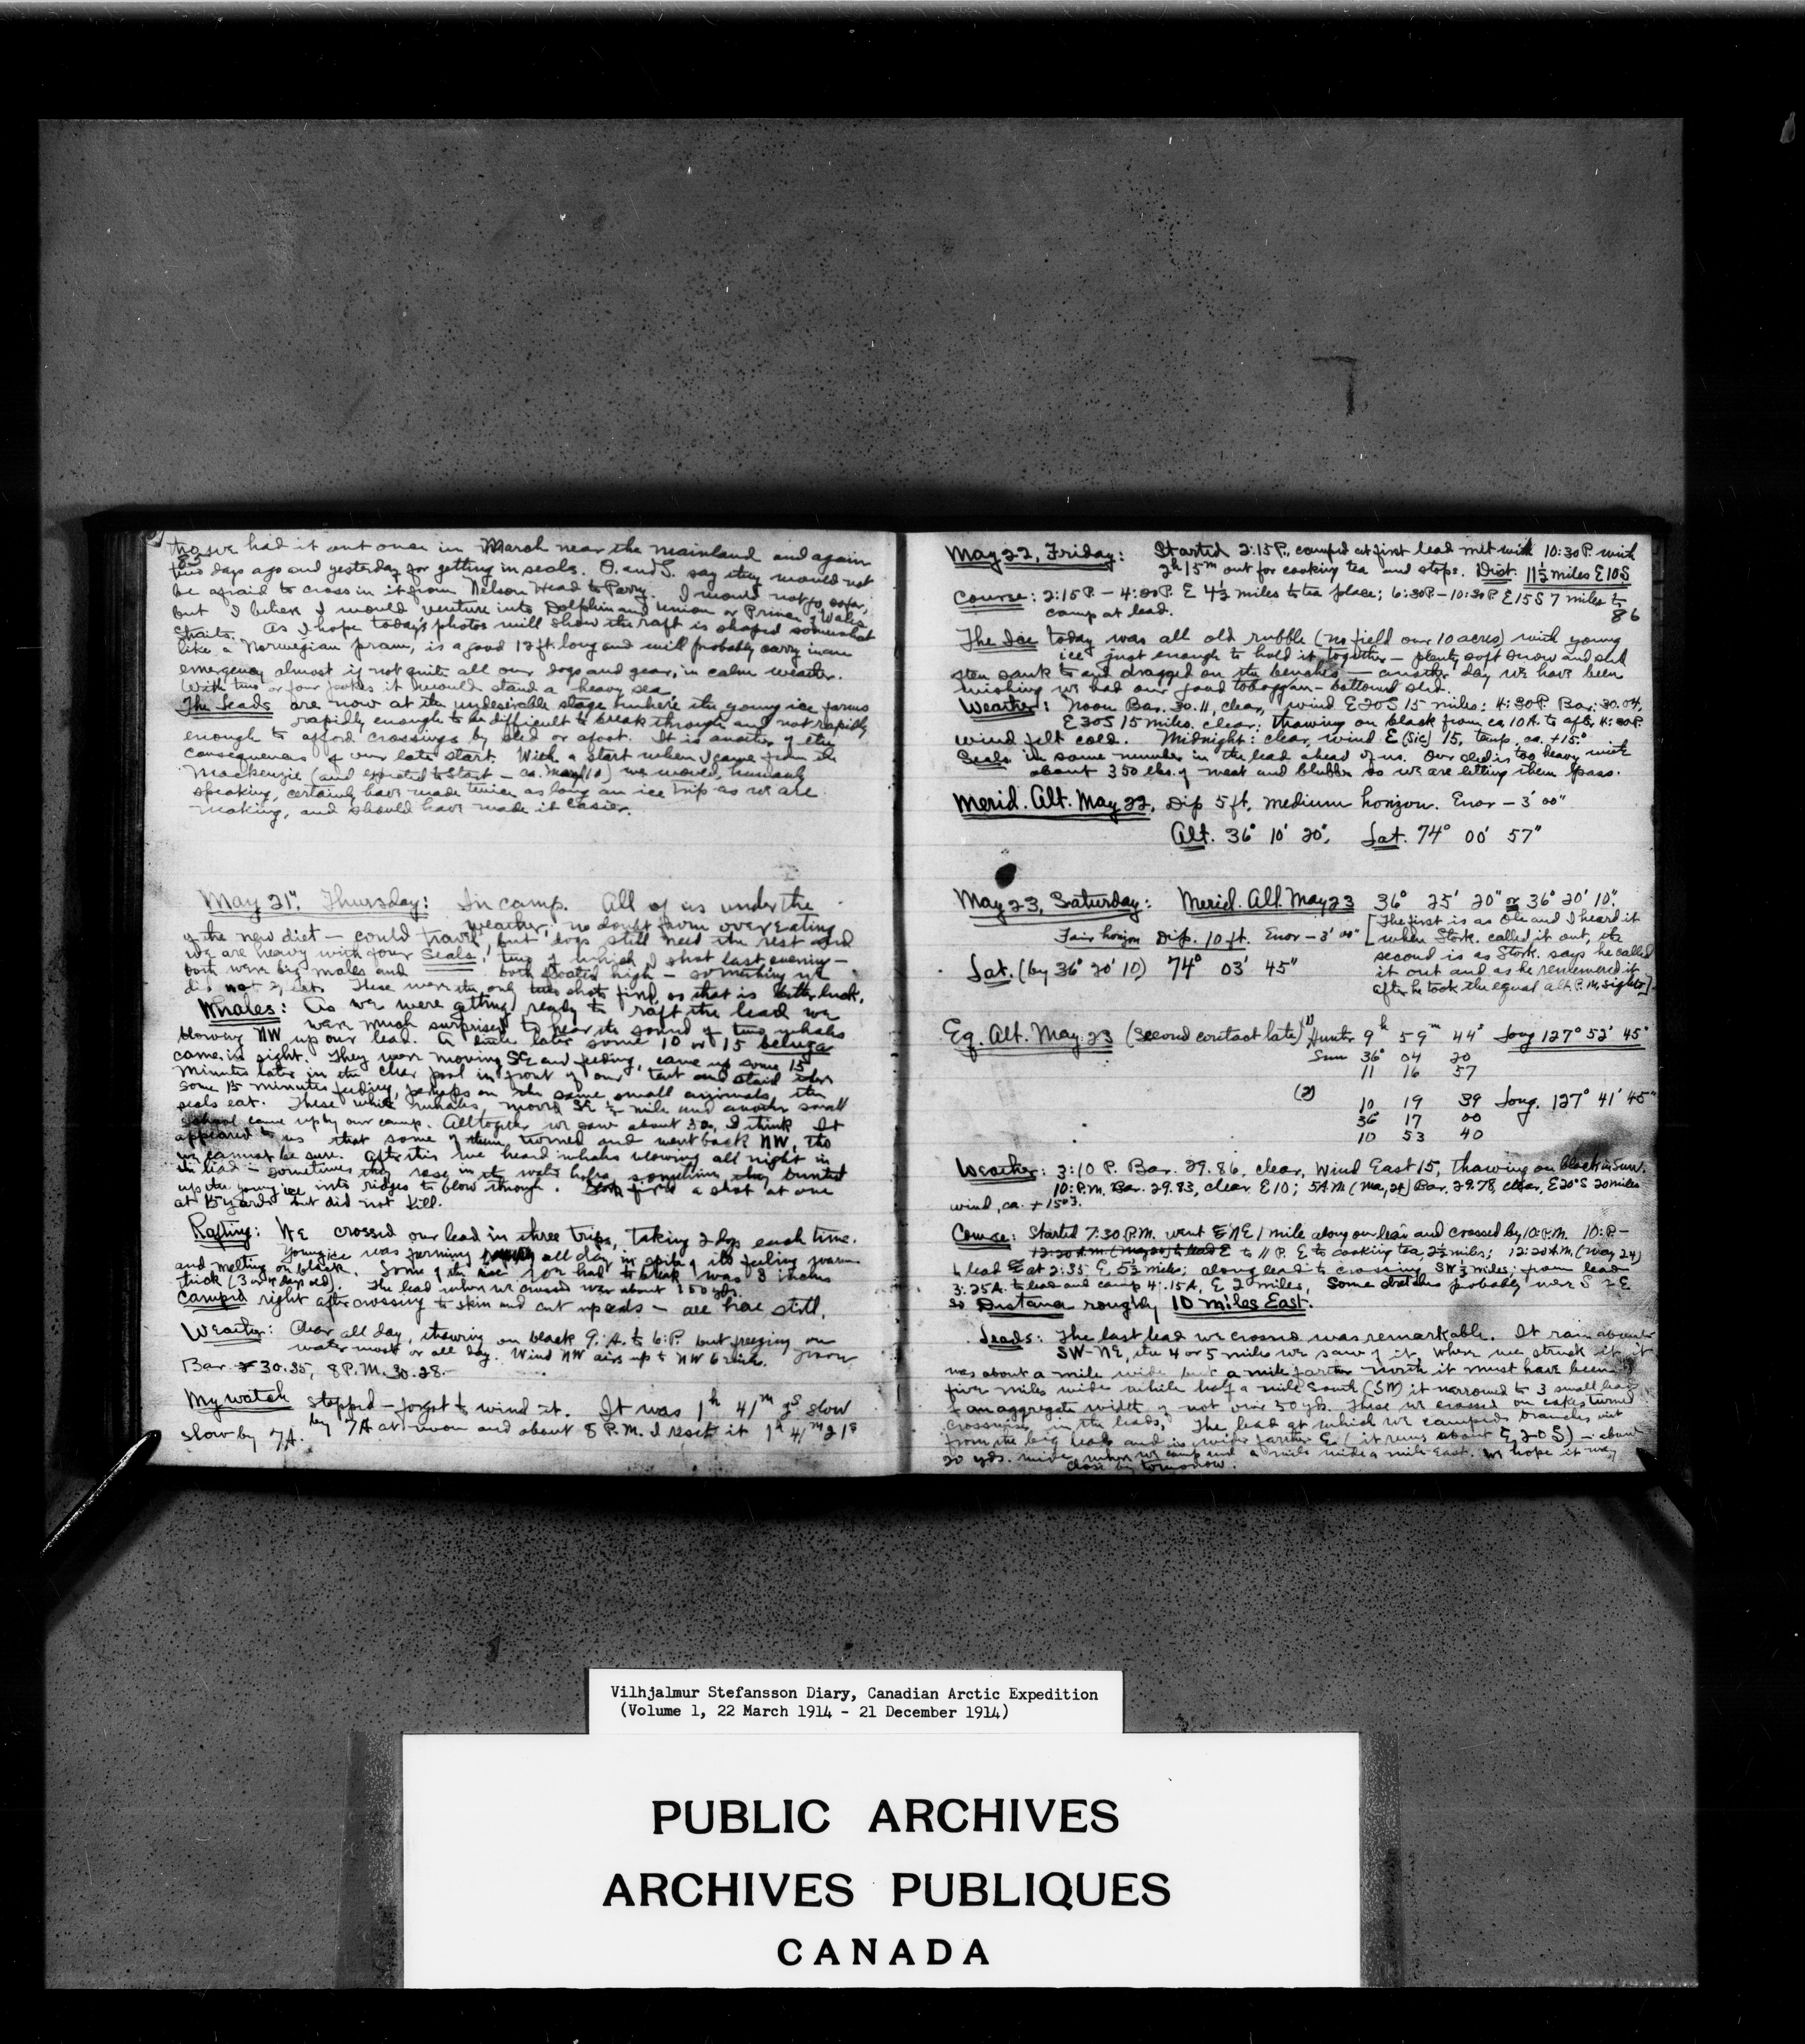 tho we had it out once in March near the mainland and again
85
two days ago and yesterday for getting in seals. O. and S. say they would not
be afraid to cross in it from Nelson Head to Parry. I would not go so far,
but I believe I would venture into Dolphin and Union or Prince of Wales
Straits. As I hope today's photos will show the raft is shaped somewhat
like a Norwegian pram, is a good 12 ft. long and will probably carry in an
emergency almost if not quite all our dogs and gear, in calm weather.
With two or four it would stand a heavy sea.
The Leads are now at the undesirable stage where the young ice forms
rapidly enough to be difficult to break through and not rapidly
enough to afford crossings by sled or afoot. It is another of the
consequences of our late start. With a start when I came from the
Mackenzie (and expected to start – ca. ) we would, humanly
speaking, certainly have made twice as long an ice trip as we are
making, and should have made it easier.
May 21", Thursday: In camp. All of us under the
weather, no doubt from over eating
of the new diet – could travel, but dogs still need the rest and
we are heavy with four Seals, two of which I shot last evening –
both were big males and both floated high – something we
did not expect. These were the only two shots fired, so that is better luck.
Whales: As we were getting ready to raft the lead we
were much surprised to hear the sound of two whales
blowing NW up our lead. A little later some 10 or 15 beluga
came in sight. They were moving SE and feeding, came up some 15
minutes later in the clear pool in front of our tent and staid there
some 15 minutes feeding, perhaps on the same small animals the
seals eat. These white whales moved SE ½ mile and another small
school came up by our camp. Alltogether we saw about 30, I think. It
appeared to us that some of them turned and went back NW, tho
we cannot be sure. After this we heard whales blowing all night in
the lead – sometimes they rose in the water holes, sometimes they bunted
up the young ice into ridges to blow through. fired a shot at one
at 15 yards but did not kill.
Rafting: We crossed our lead in three trips, taking 2 dogs each time.
Young ice was forming all day in spite of its feeling warm
and melting on black. Some of the ice we had to break was 3 inches
thick (3 or 4 days old). The lead when we crossed was about 150 yds.
Camped right after crossing to skin and cut up seals – all here still.
Weather: Clear all day, thawing on black 9: A. to 6: P. but freezing on
water most or all day. Wind NW airs up to NW 6 miles.
Bar. 30.35, 8 P.M. 30.28.–
My watch stopped – forgot to wind it. It was 1h 41m 2s slow
slow by 7A. by 7A at noon and about 8 P.M. I reset it 1h 41m 21s
May 22, Friday: Started 2:15 P., camped at first lead met with 10:30 P. with
2h 15m out for cooking tea and stops. Dist. 11½ miles E10S
Course: 2:15 P – 4:00 P. E 4½ miles to tea place; 6:30P – 10:30P E15S 7 miles to
camp at lead.
86
The Ice today was all old rubble (no field over 10 acres) with young
ice just enough to hold it together – plenty soft snow and sled
sank to and dragged on the benches – another day we have been
wishing we had our good toboggan-bottomed sled.
Weather: Noon Bar. 30.11, clear, wind E20S 15 miles; 4:30P. Bar. 30.04,
E30S 15 miles. clear; thawing on black from ca 10A. to after 4:30P.
wind felt cold. Midnight: clear, wind E (sic) 15, temp. ca. +15.°
Seals in some number in the lead ahead of us. Our sled is too heavy with
about 350 lbs. of meat and blubber so we are letting them pass.
Merid. Alt. May 22, Dip 5 ft. medium horizon. Error – 3' 00"
Alt. 36° 10' 20", Lat. 74° 00' 57"
May 23, Saturday: Merid. Alt. May 23 36° 25' 20" or 36° 20' 10".
Fair horizon Dip. 10 ft. Error – 3' 00" [The first is as Ole and I heard it
when Stork. called it out, the
second is as Stork. says he called
Lat. (by 36° 20' 10) 74° 03' 45"
it out and as he remembered it
after he took the equal alt. P.M. sights].
Eq. Alt. May 23 (Second contact late) (1) Hunter 9h 59m 44s Long 127° 52' 45"
Sun 36° 04 20
11 16 57
(2) 10 19 39 Long. 127° 41' 45"
36° 17 00
10 53 40
Weather: 3:10 P. Bar. 29.86, clear, Wind East 15, thawing on black in sun.
10: P.M. Bar. 29.83, clear, E 10; 5 A.M. (May 24) Bar. 29.78, clear, E20°S 20 miles
wind, ca. +15°
Course: Started 7:30 P.M. went ENE 1 mile along our lead and crossed by 10: P.M. 10: P –
12:20 A.M. (May 24) to lead E to 11 P. E to cooking tea, 2½ miles; 12:20 A.M. (May 24)
to lead at 2:35 E, 5½ miles; along lead to crossing SW ½ miles; from lead
3:25 A. to lead and camp 4:15 A, E 2 miles. Some stretches probably were S of E
so Distance roughly 10 miles East.
Leads: The last lead we crossed was remarkable. It ran about
SW-NE, the 4 or 5 miles we saw of it. Where we struck it it
was about a mile wide but a mile farther north it must have been
five miles wide while half a mile South (SW) it narrowed to 3 small leads
of an aggregate width of not over 50 yds. These we crossed on cakes turned
crosswise in the leads. The lead at which we camped branches out
from the big lead and is wider farther E. (it runs about E 20 S) – about
20 yds. wide where we camp and a mile wide a mile East. We hope it may
close by tomorrow.
Vilhjalmur Stefansson Diary, Canadian Arctic Expedition
(Volume 1, 22 March 1914 - 21 December 1914)
PUBLIC ARCHIVES
ARCHIVES PUBLIQUES
CANADA